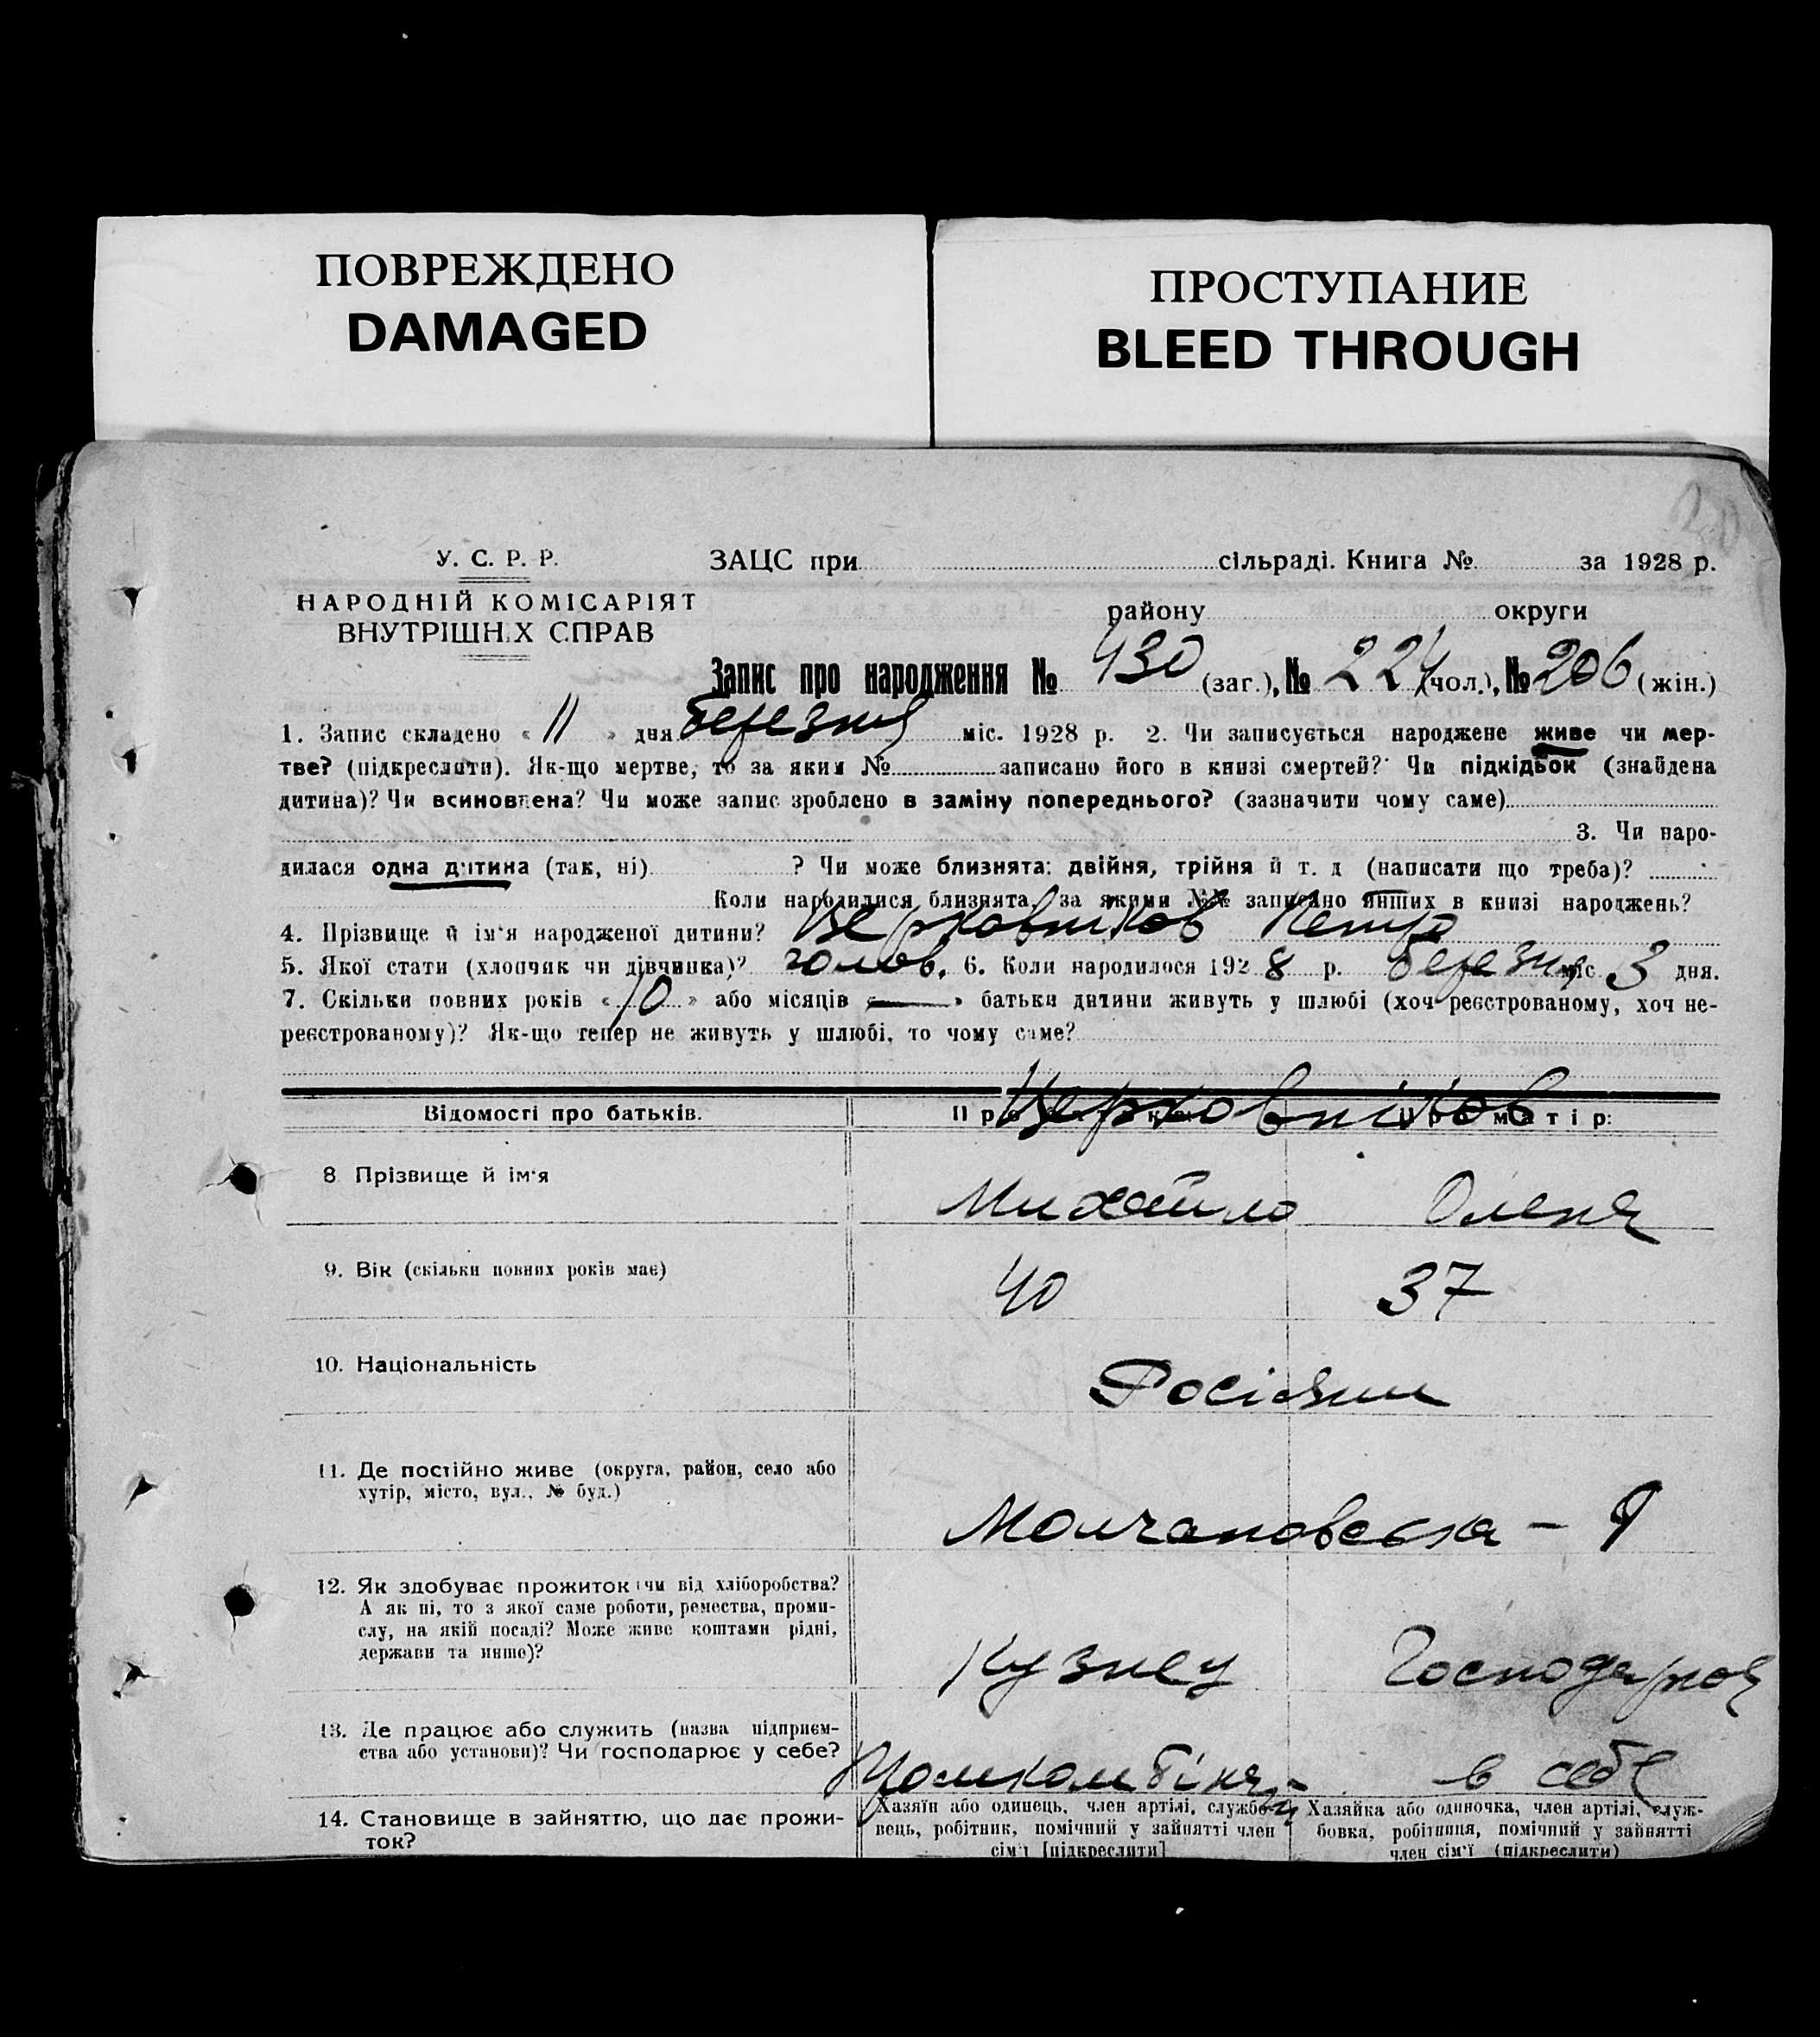 ПОВРЕЖДЕНО
DAMAGED
ПРОСТУПАНИЕ
BLEED THROUGH
У. С. Р. Р.
НАРОДНІЙ КОМІСАРІЯТ
ВНУТРІШНІХ СПРАВ
ЗАЦС при сільраді. Книга № за 1928 р.
району округи
Запис про народження № 430 (заг.), № 224 (чол.), № 206 (жін.)
1. Запис складено « 11 » дня березня міс. 1928 р. 2. Чи записується народжене живе чи мер-
тве? (підкреслити). Як-що мертве, то за яким № записано його в книзі смертей? Чи підкідьок (знайдена
дитина)? Чи всиновлена? Чи може запис зроблено в заміну попереднього? (зазначити чому саме)
3. Чи наро-
дилася одна дитина (так, ні) ? Чи може близнята: двійня, трійня й т. д (написати що треба)?
Коли народилися близнята, за якими №№ записано инших в книзі народжень?
4. Прізвище й ім'я народженої дитини? Церковніков Петро
5. Якої статі (хлопчик чи дівчинка)? чолов. 6. Коли народилося 1928 р. березня міс 3 дня.
7. Скільки повних років « 10 » або місяців « — » батьки дитини живуть у шлюбі (хоч реєстрованому, хоч не-
реєстрованому)? Як-що тепер не живуть у шлюбі, то чому саме?
Відомості про батьків. Про батька: Про матір:
Церковніков
8 Прізвище й ім'я Михайло Олена
9. Вік (скільки повних років має) 40 37
10. Національність Росіяни
11. Де постійно живе (округа, район, село або
хутір, місто, вул., № буд.)
Молчановська –
12. Як здобуває прожиток чи від хліборобства?
А як ні, то з якої саме роботи, ремества, проми-
слу, на якій посаді? Може живе коштами рідні,
держави та инше)?
Кузнец Господарює
13. Де працює або служить (назва підприєм-
ства або установи)? Чи господарює у себе?
в себе
14. Становище в зайняттю, що дає прожи-
ток?
Хазяїн або одинець, член артілі, службо-
вець, робітник, помічний у зайнятті член
сім'ї [підкреслити]
Хазяйка або одиночка, член артілі, служ-
бовка, робітниця, помічний у зайнятті
член сім'ї (підкреслити)